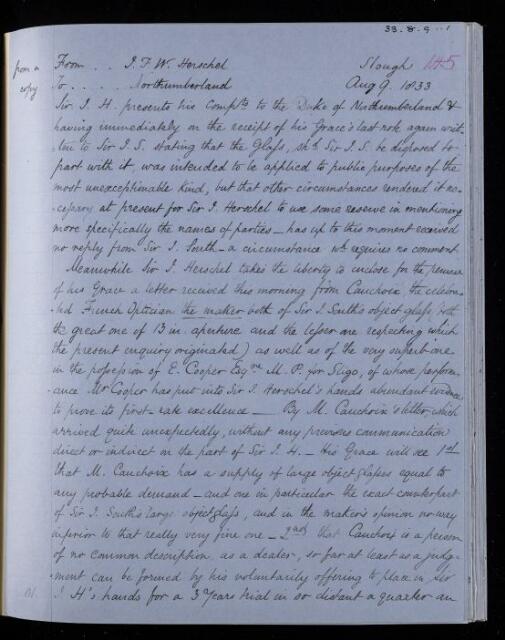 33.8.9...1
From... J. F. W. Herschel Slough 145
from a
copy
To...... Northumberland Aug 9. 1833
Sir J. H. presents his Compts to the Duke of Northumberland &
having immediately on the receipt of his Grace's last note again writ-
ten to Sir J. S. stating that the Glass, shd. Sir J. S. be disposed to
part with it, was intended to be applied to public purposes of the
most unexceptionable kind, but that other circumstances rendered it ne-
cessary at present for Sir J. Herschel to use some reserve in mentioning
more specifically the names of parties - has up to this moment received
no reply from Sir J. South - a circumstance wh. requires no comment
Meanwhile Sir J. Herschel takes the liberty to enclose for the perusal
of his Grace a letter received this morning from Cauchoix the celebra-
ted French Optician the maker both of Sir J. South's object glass (both
the great one of 13 in. aperture and the lesser one respecting which
the present enquiry originated) as well as of the very superb one
in the possession of E. Cooper Esqre M. P. for Sligo, of whose perform-
ance Mr Cooper has put into Sir J. Herschel's hands abundant evidence
to prove its first-rate excellence - By M. Cauchoix's letter which
arrived quite unexpectedly, without any previous communication
direct or indirect on the part of Sir J. H. - His Grace will see 1st
that M. Cauchoix has a supply of large object glasses equal to
any probable demand - and one in particular the exact counterpart
of Sir J. South's large object glass, and in the maker's opinion no way
inferior to that really very fine one - 2nd that Cauchoix is a person
of no common description, as a dealer, so far at least as a judg-
ment can be formed by his voluntarily offering to place in Sir
J. H's hands for a 3 Years trial in so distant a quarter an